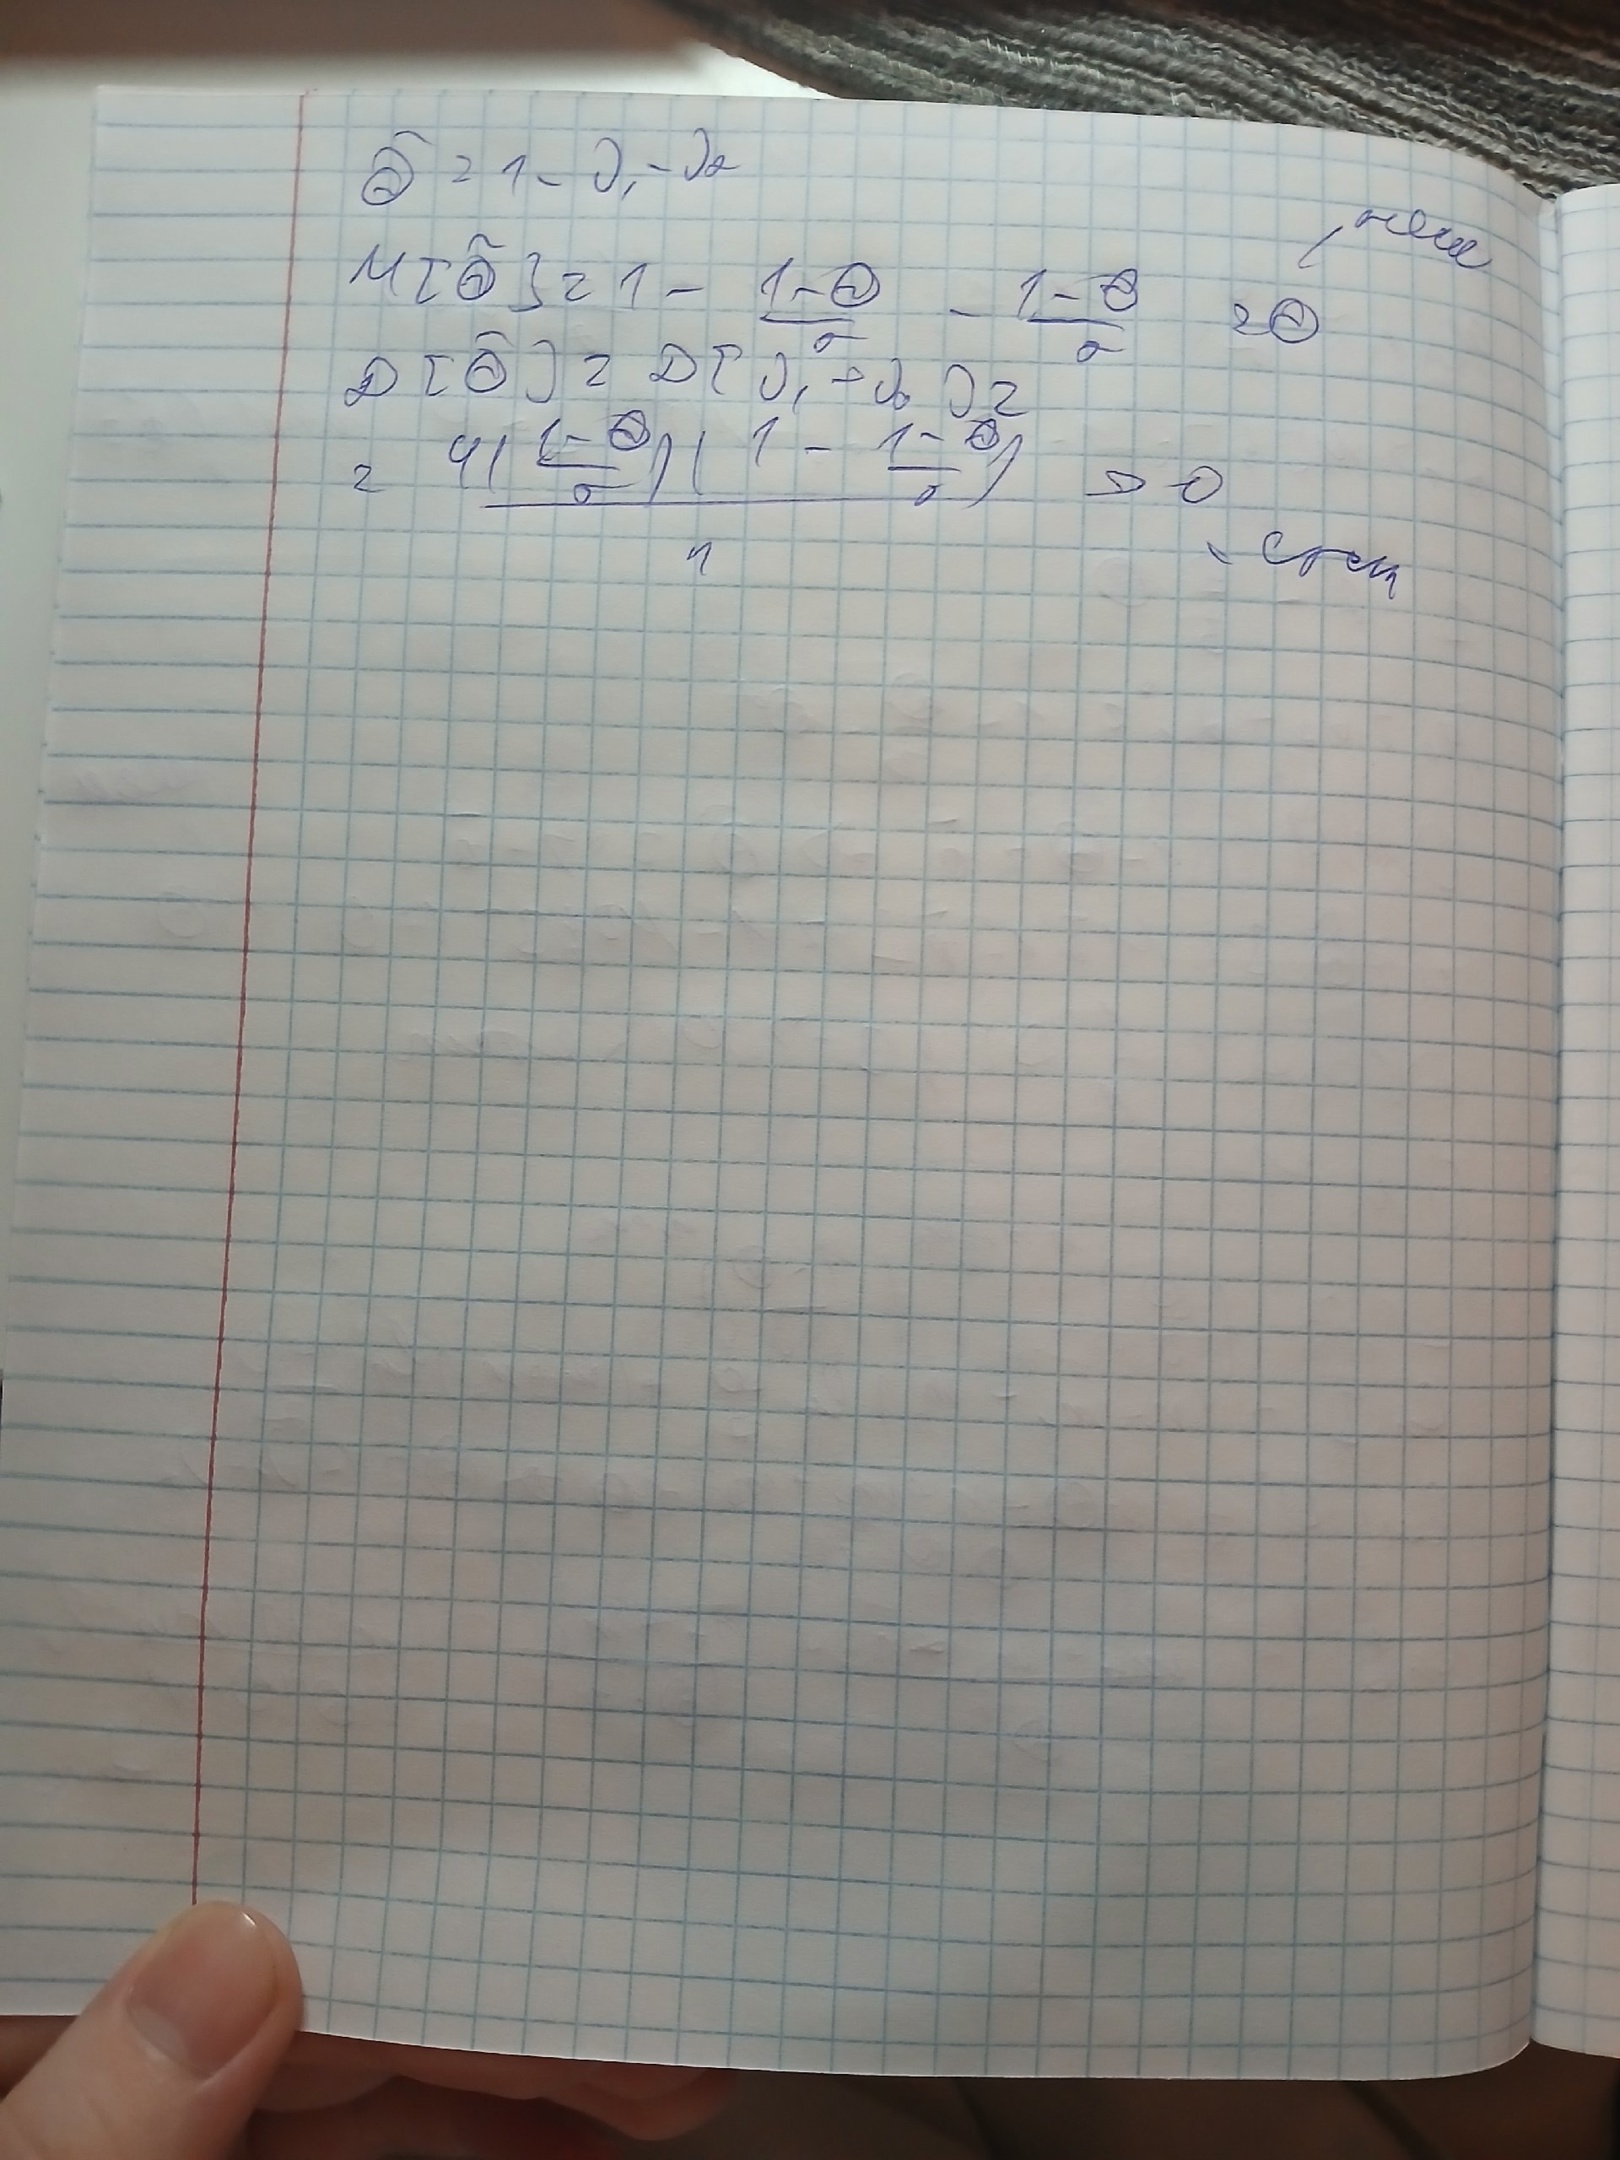 θ̃ = 1 - ν₁ - ν₂
M[θ̃] = 1 - (1-θ)/2 - (1-θ)/2 = θ
D[θ̃] = D[ν₁ + ν₂] =
= 4((1-θ)/2)(1 - (1-θ)/2) / n → 0